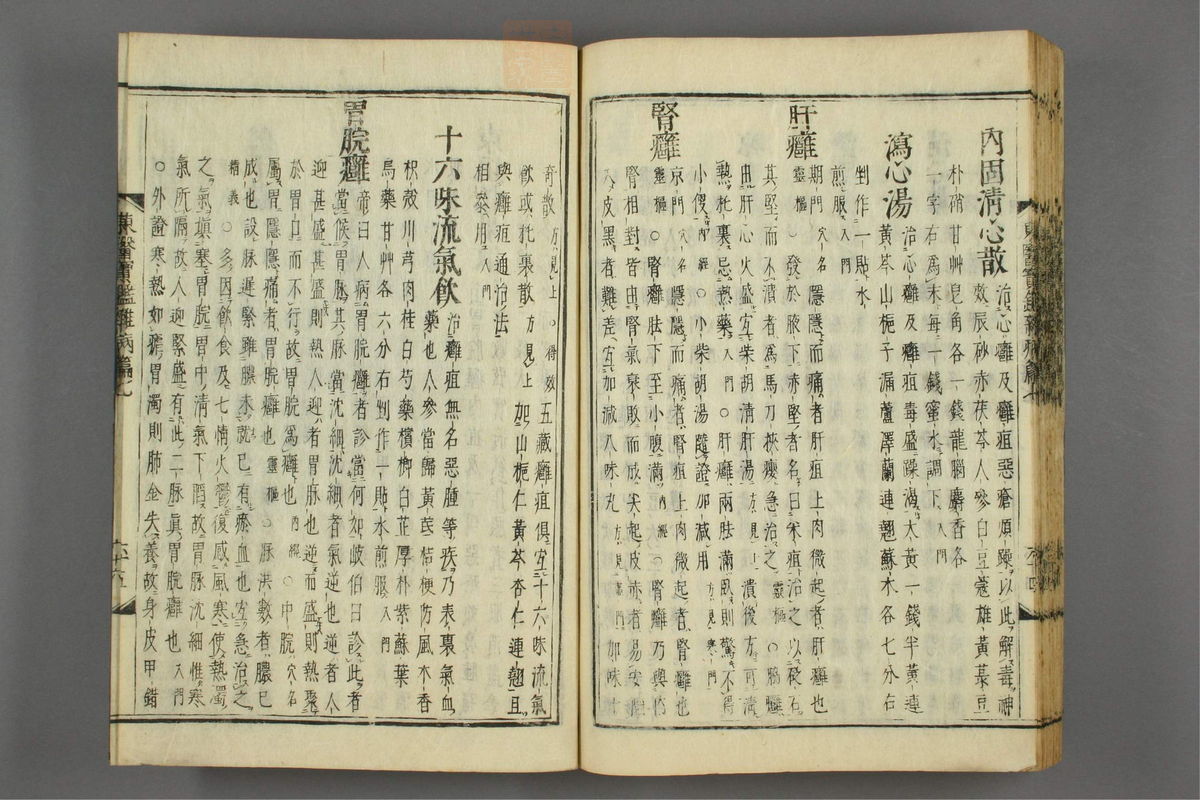 內固淸心散 治心癰及癰疽惡瘡煩躁以此解毒神
效辰砂赤茯苓人參白豆蔻雄黃菉豆
朴硝甘艸皂角各一錢龍腦麝香各
一字右爲末每一錢蜜水調下 入門
瀉心湯 治心癰及癰疽毒盛躁渴大黃一錢半黃連
黃芩山梔子漏蘆澤蘭連翹蘇木各七分右
剉作一貼水
煎服 入門
肝癰
期門 穴名 隱隱而痛者肝疽上肉微起者肝癰也
靈樞 ○發於腋下赤堅者名曰米疽治之以砭石
其堅而不潰者爲馬刀挾癭急治之 靈樞 ○腋癰
由肝心火盛宜柴胡淸肝湯 方見上 潰後方可淸
熱托裏忌熱藥 入門 ○肝癰兩胠滿臥則驚不得
小便 內經 ○小柴胡湯隨證加減用 方見寒門
腎癰
京門 穴名 隱隱而痛者腎疽上肉微起者腎癰也
靈樞 ○腎癰胠下至小腹滿 內經 ○腎癰乃與內
腎相對皆由腎氣衰敗而成尖起皮赤者易安陷
入皮黑者難差宜加減八味丸 方見 加味十
奇散 方見上 ○得效 五藏癰疽俱宜十六味流氣
飮或托裏散 方見上 加山梔仁黃芩杏仁連翹且
與癰疽通治法
相參用 入門
十六味流氣飮 治癰疽無名惡腫等疾乃表裏氣血
藥也人參當歸黃芪桔梗防風木香
枳殼川芎肉桂白芍藥檳榔白芷厚朴紫蘇葉
烏藥甘艸各六分右剉作一貼水煎服 入門
胃脘癰
帝曰人病胃脘癰者診當何如岐伯曰診此者
當候胃脈其脈當沈細沈細者氣逆也逆者人
迎甚盛甚盛則熱人迎者胃脈也逆而盛則熱聚
於胃口而不行故胃脘爲癰也 內經 ○中脘 穴名
屬胃隱隱痛者胃脘癰也 靈樞 ○脈洪數者膿已
成也設脈遲緊雖膿未就已有瘀血也宜急治之
精義 ○多因飮食及七情火鬱復感風寒使熱濁
之氣塡塞胃脘胃中淸氣下陷故胃脈沈細惟寒
氣所隔故人迎緊盛有此二脈眞胃脘癰也 入門
○外證寒熱如瘧胃濁則肺金失養故身皮甲錯
東醫寶鑑雜病篇七